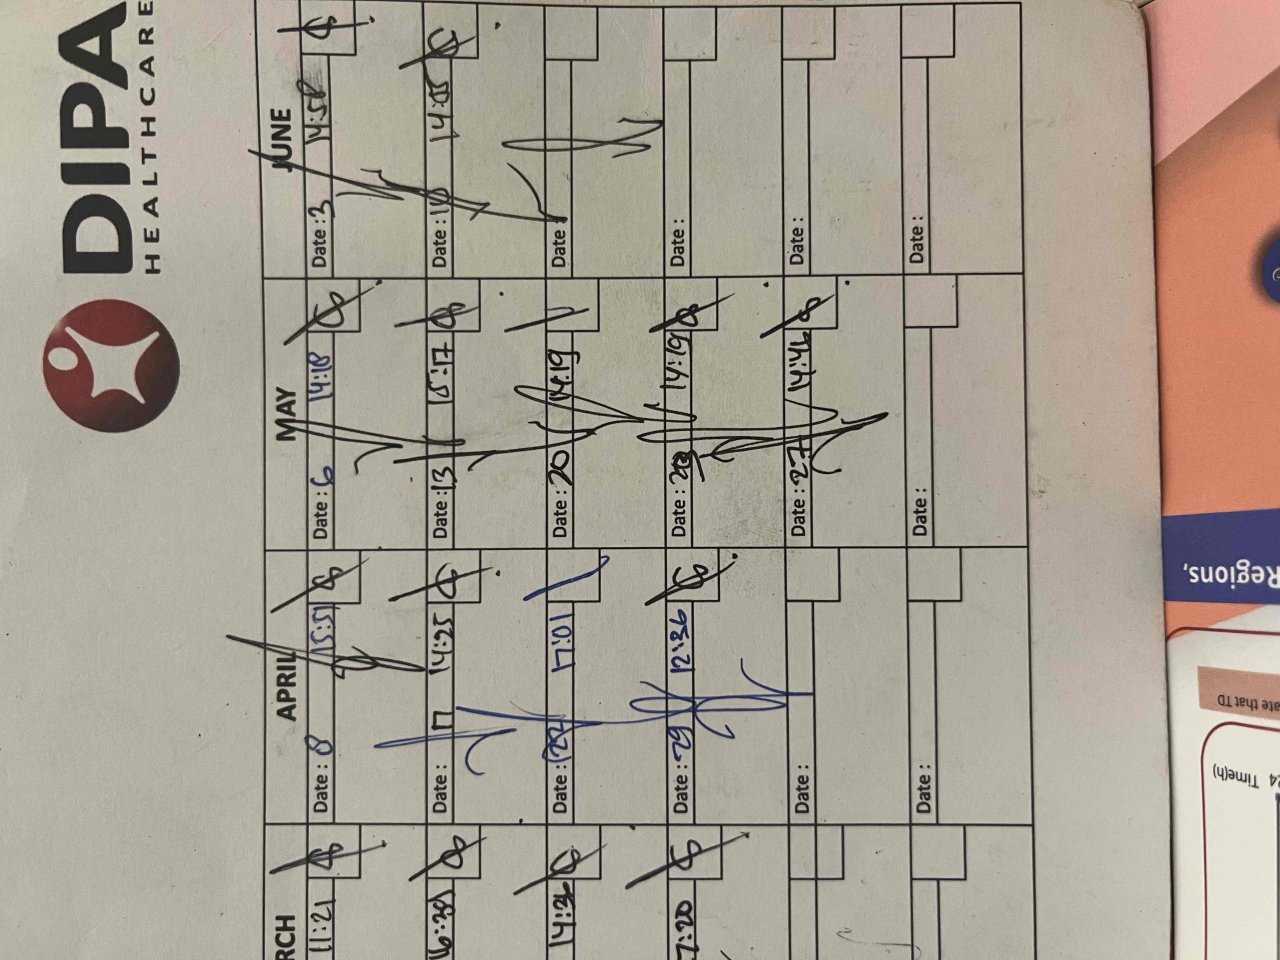 DIPA
HEALTHCARE
RCH
11:21
16:38
14:36
7:20
APRIL
Date : 8 15:51
Date : 17 14:25
Date : 22 17:01
Date : 29 12:36
Date :
Date :
MAY
Date : 6 14:18
Date : 13 15:17
Date : 20 14:19
Date : 14:19
Date : 27 14:46
Date :
JUNE
Date : 3 14:58
Date : 10 14:05
Date
Date :
Date :
Date :
Regions,
ate that TD
24 Time(h)